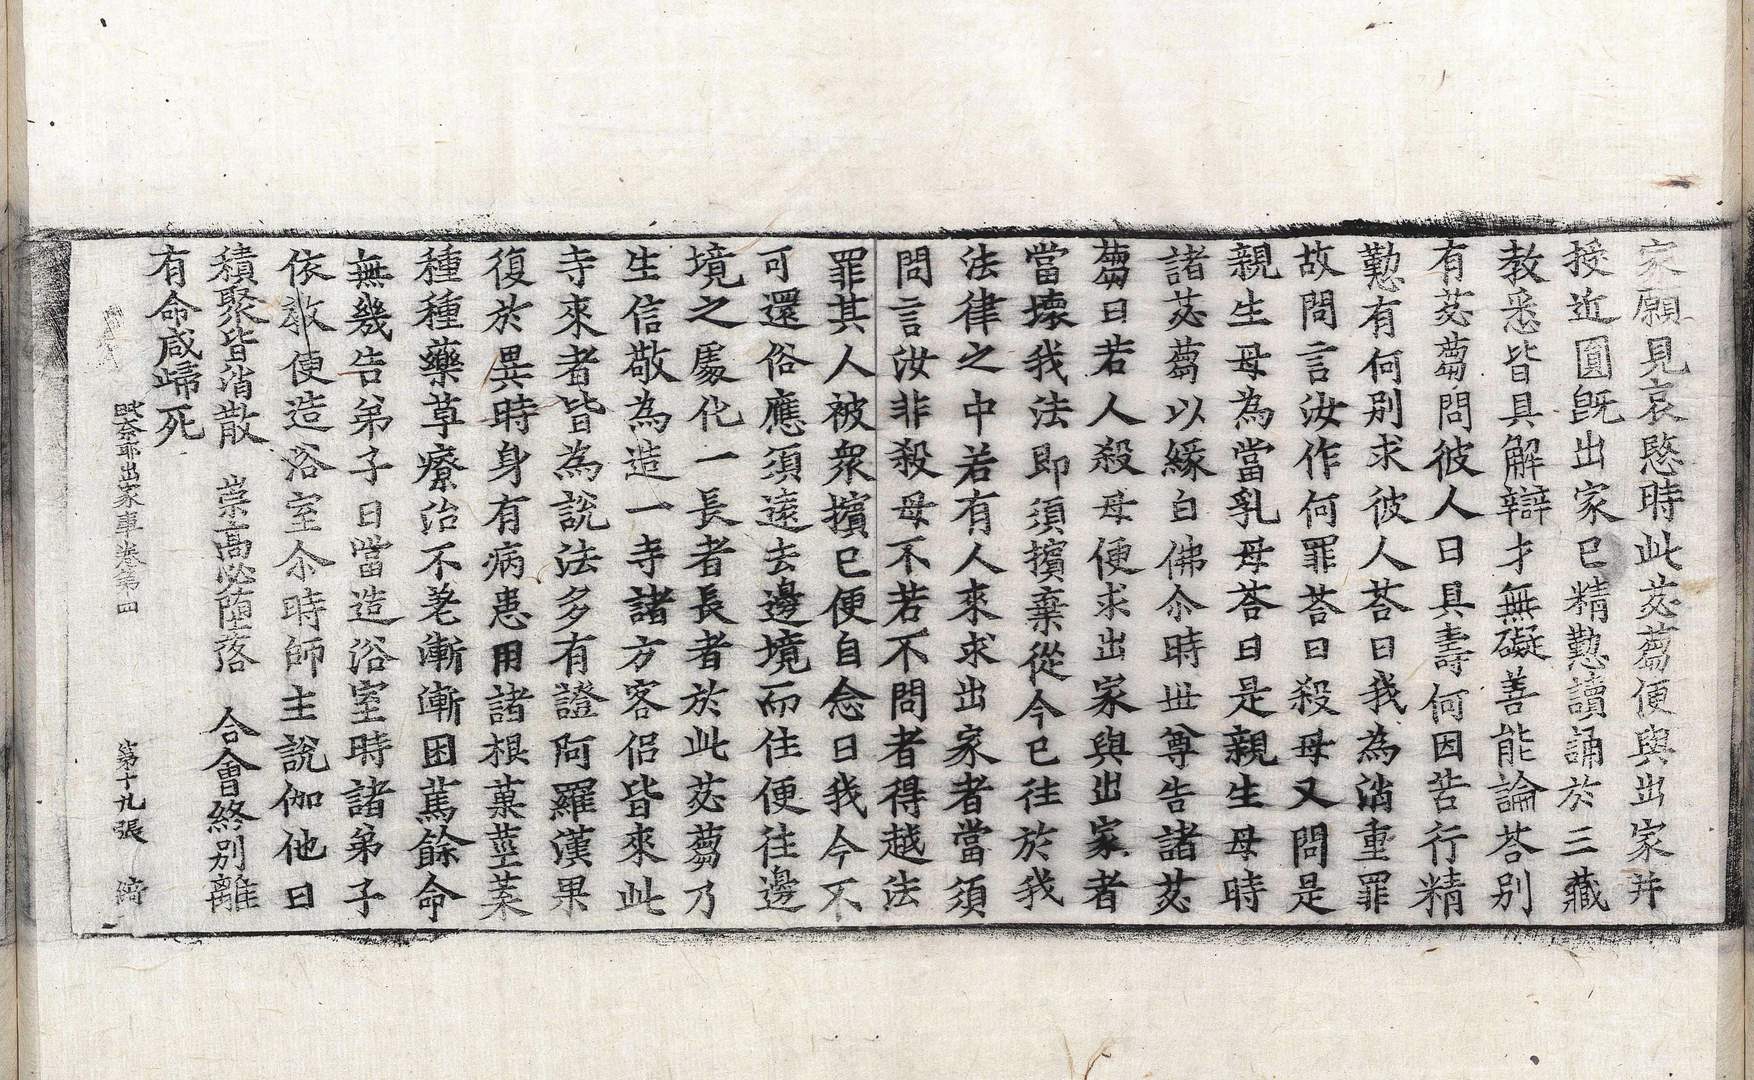 家願見哀愍時此苾蒭便與出家并
授近圓旣出家已精懃讀誦於三藏
教悉皆具解辯才無礙善能論荅別
有苾蒭問彼人曰具壽何因苦行精
懃有何別求彼人荅曰我為消重罪
故問言汝作何罪荅曰殺母又問是
親生母為當乳母荅曰是親生母時
諸苾蒭以緣白佛尒時世尊告諸苾
蒭曰若人殺母便求出家與出家者
當壞我法即須擯棄從今已往於我
法律之中若有人來求出家者當須
問言汝非殺母不若不問者得越法
罪其人被衆擯已便自念曰我今不
可還俗應須遠去邊境而住便往邊
境之處化一長者長者於此苾蒭乃
生信敬為造一寺諸方客侶皆來此
寺來者皆為說法多有證阿羅漢果
復於異時身有病患用諸根菓莖葉
種種藥草療治不差漸漸困篤餘命
無幾告弟子曰當造浴室時諸弟子
依教便造浴室尒時師主說伽他曰
積聚皆消散 崇高必墮落 合會終別離
有命咸歸死
毗奈耶出家事卷第四 第十九張